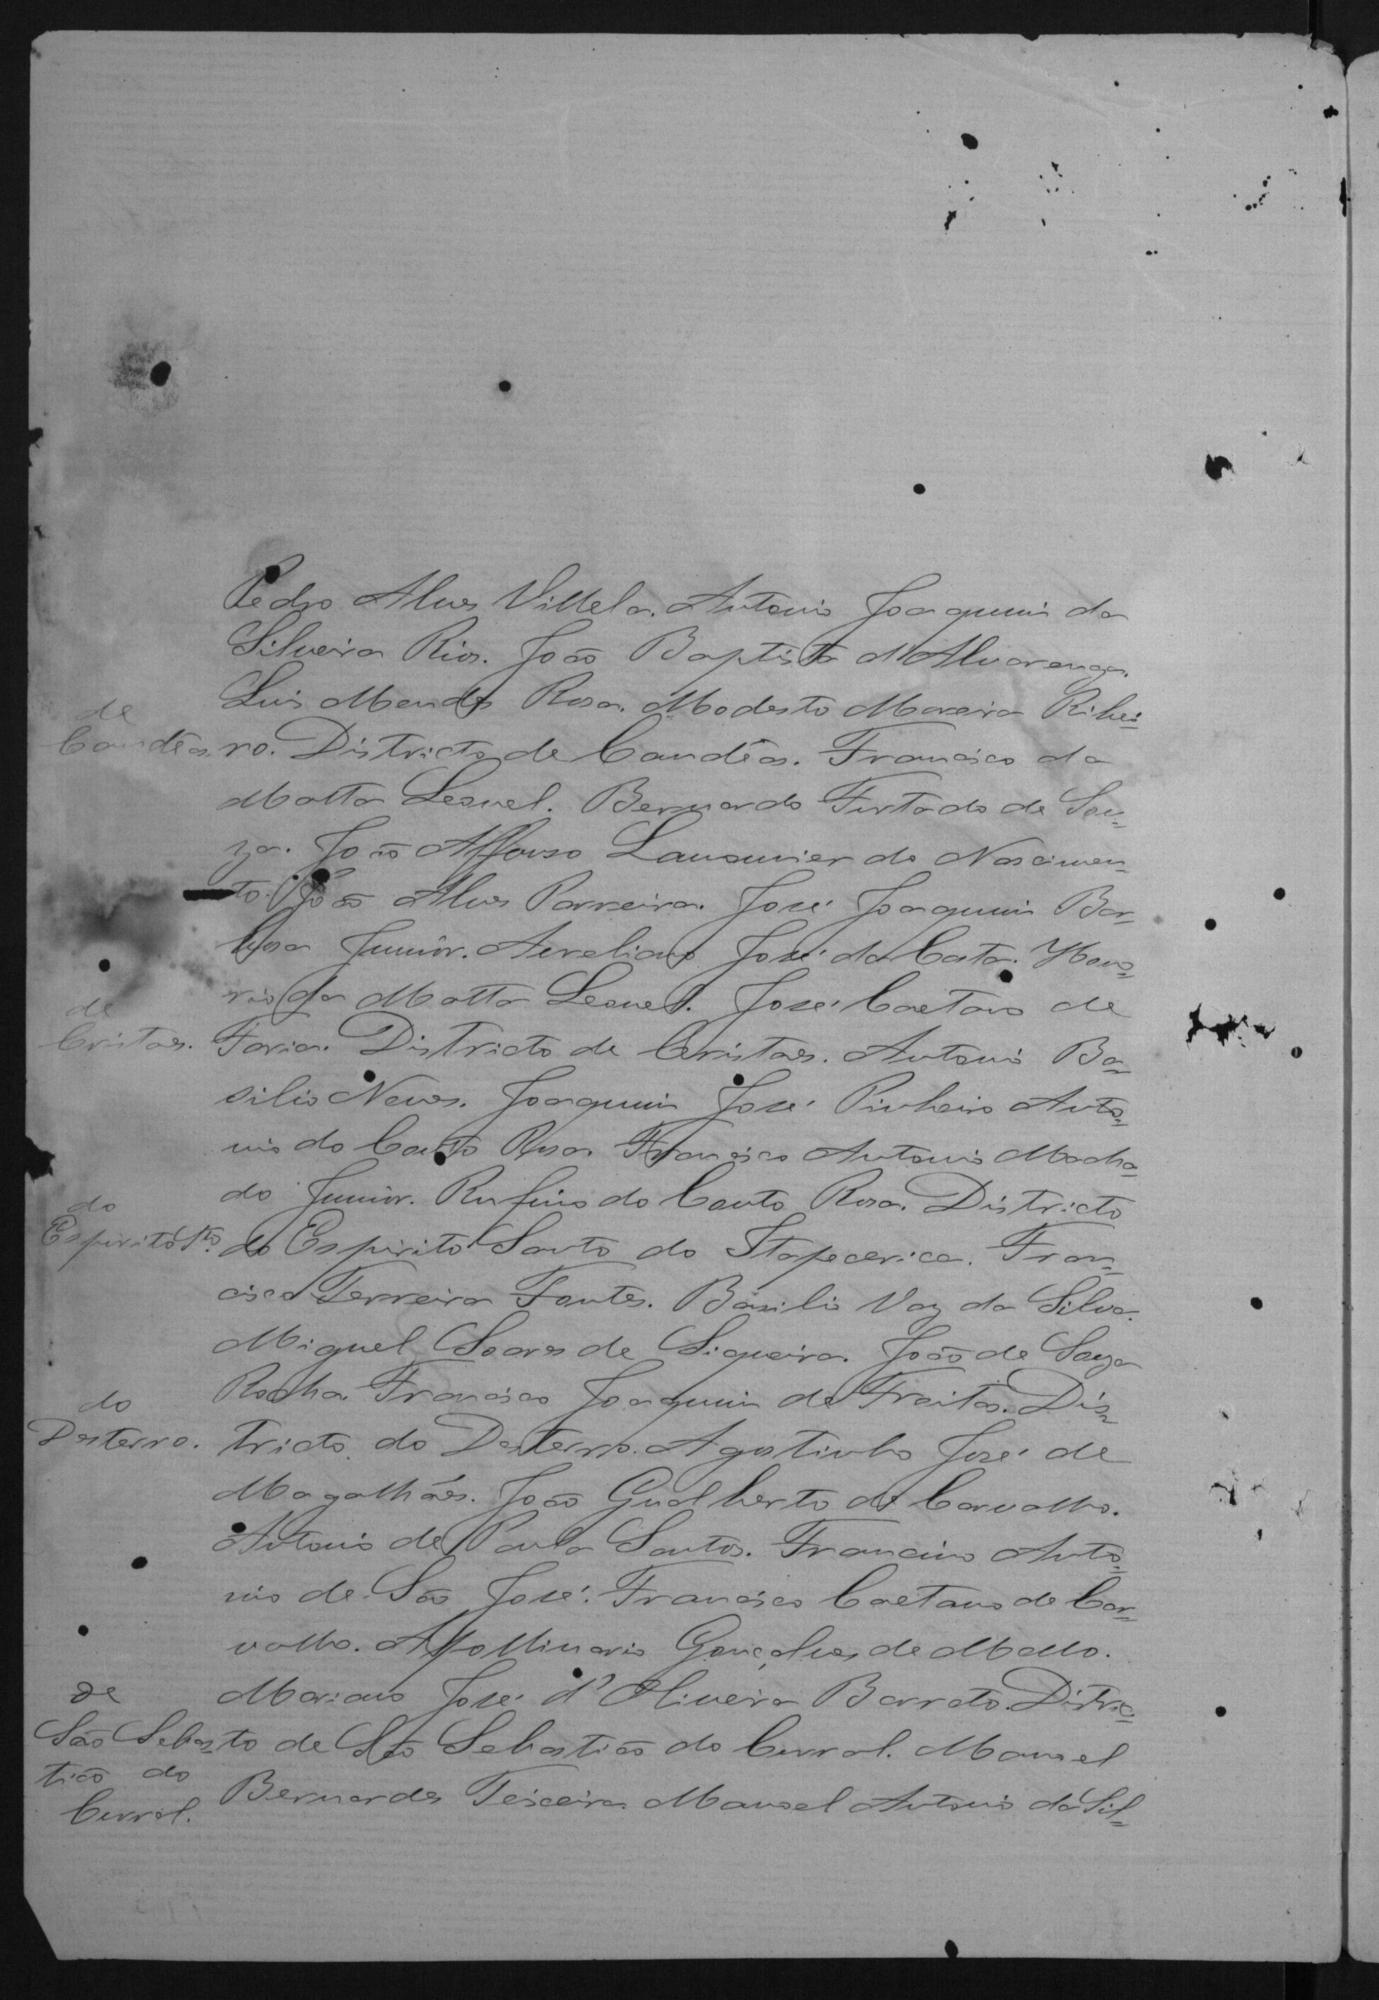 Pedro Alves Villela. Antonio Joaquim da
Silveira Rios. João Baptista d'Alvarenga.
Luis Mendes Rosa. Modesto Moreira Ribei=
de
Candêas ro. Districto de Candêas. Francisco da
Motta Lesuel. Bernardo Furtado de Sou=
za. João Affonso Lamounier do Nascimen=
to. João Alves Parreira. José Joaquim Bar=
bosa Junior. Aureliano José da Costa. Hono=
rio da Motta Lesuel. José Caetano de
de
Cristaes. Faria. Districto de Cristaes. Antonio Ba=
silio Neves. Joaquim José Pinheiro Anto=
nio do Couto Rosa Francisco Antonio Macha=
do Junior. Rufino do Couto Rosa. Districto
do
Espirito Sto. do Espirito Santo do Itapecerica. Fran=
cisco Ferreira Fontes. Basilio Vaz da Silva.
Miguel Soares de Siqueira. João de Souza
Rocha. Francisco Joaquim de Freitas. Dis=
do
Desterro. tricto do Desterro. Agostinho José de
Magalhães. João Gualberto de Carvalho.
Antonio de Paula Santos. Francino Anto=
nio de São José. Francisco Caetano de Car=
valho. Apollinario Gonçalves de Mello.
Mariano José d'Oliveira Barreto. Distric=
de
São Sebas= to de São Sebastião do Curral. Manoel
tião do
Curral. Bernardes Teixeira. Manoel Antonio da Sil=